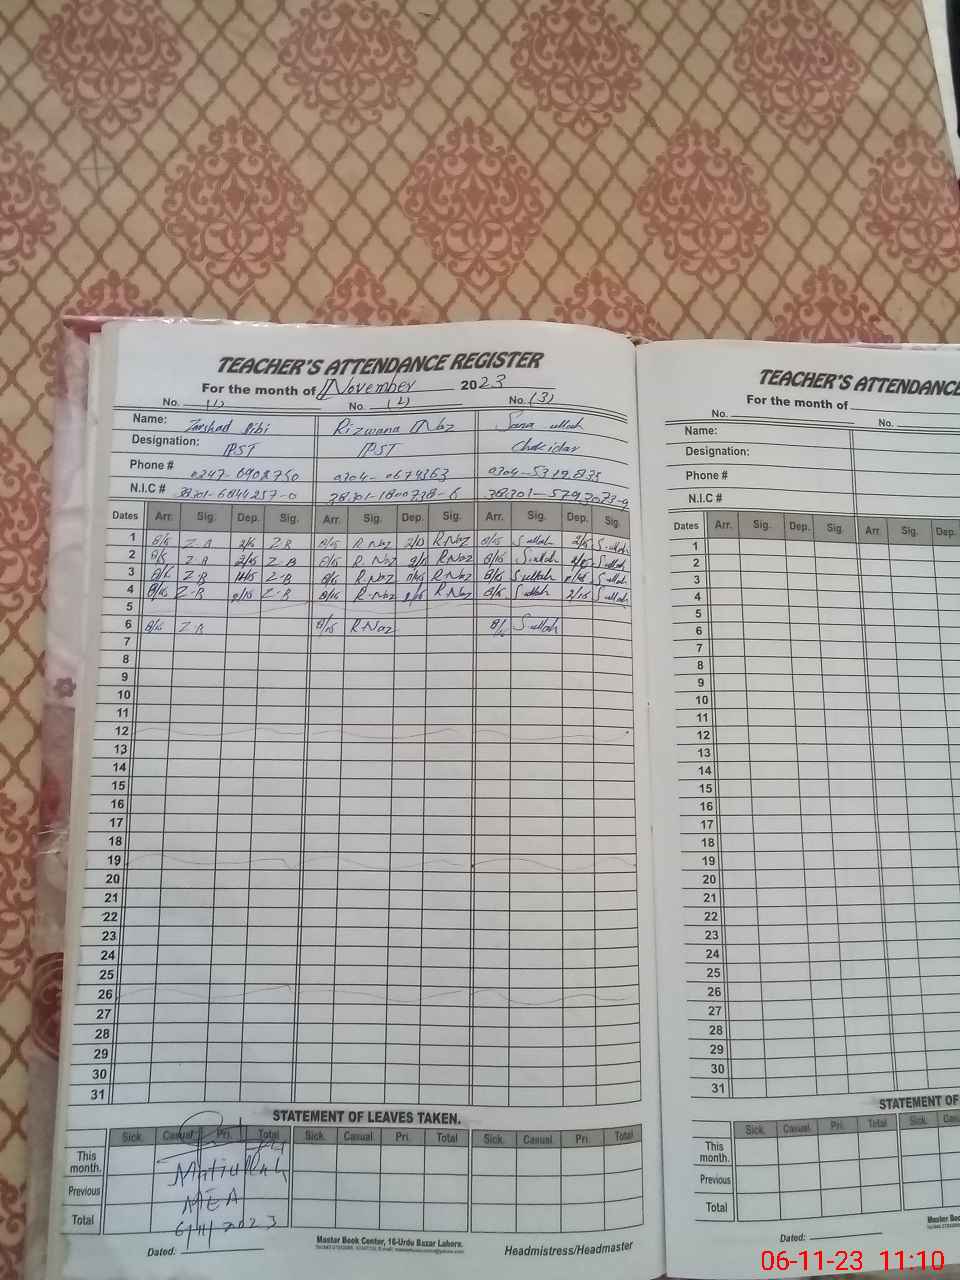 TEACHER'S ATTENDANCE REGISTER
For the month of November 2023
No. (1) No. (2) No. (3)
Name: Zarshad Bibi Rizwana Naz Sana ullah
Designation: PST PST Chokidar
Phone #
N.I.C #
Dates Arr. Sig. Dep. Sig. Arr. Sig. Dep. Sig. Arr. Sig. Dep. Sig.
1 8/15 Z.B Z.B 8/15 R.Naz R.Naz 8/15 S.ullah S.ullah
2 Z.B Z.B 8/15 R.Naz R.Naz 8/15 S.ullah S.ullah
3 Z.B Z.B R.Naz R.Naz S.ullah S.ullah
4 8/15 Z.B Z.B 8/15 R.Naz R.Naz S.ullah 2/15 S.ullah
5
6 8/15 Z.B 8/15 R.Naz 8/15 S.ullah
7
8
9
10
11
12
13
14
15
16
17
18
19
20
21
22
23
24
25
26
27
28
29
30
31
STATEMENT OF LEAVES TAKEN.
Sick. Casual Pri. Total Sick. Casual. Pri. Total Sick. Casual. Pri. Total
This month.
Previous
Total
Matiullah
MEA
6/11/2023
Dated:
Master Book Center, 16-Urdu Bazar Lahore.
Headmistress/Headmaster
TEACHER'S ATTENDANCE
For the month of
No. No.
Name:
Designation:
Phone #
N.I.C #
Dates Arr. Sig. Dep. Sig. Arr Sig. Dep.
1
2
3
4
5
6
7
8
9
10
11
12
13
14
15
16
17
18
19
20
21
22
23
24
25
26
27
28
29
30
31
STATEMENT OF
Sick. Casual Pri. Total Sick. Casual
This month.
Previous
Total
Dated:
Master Boo
Head
06-11-23 11:10